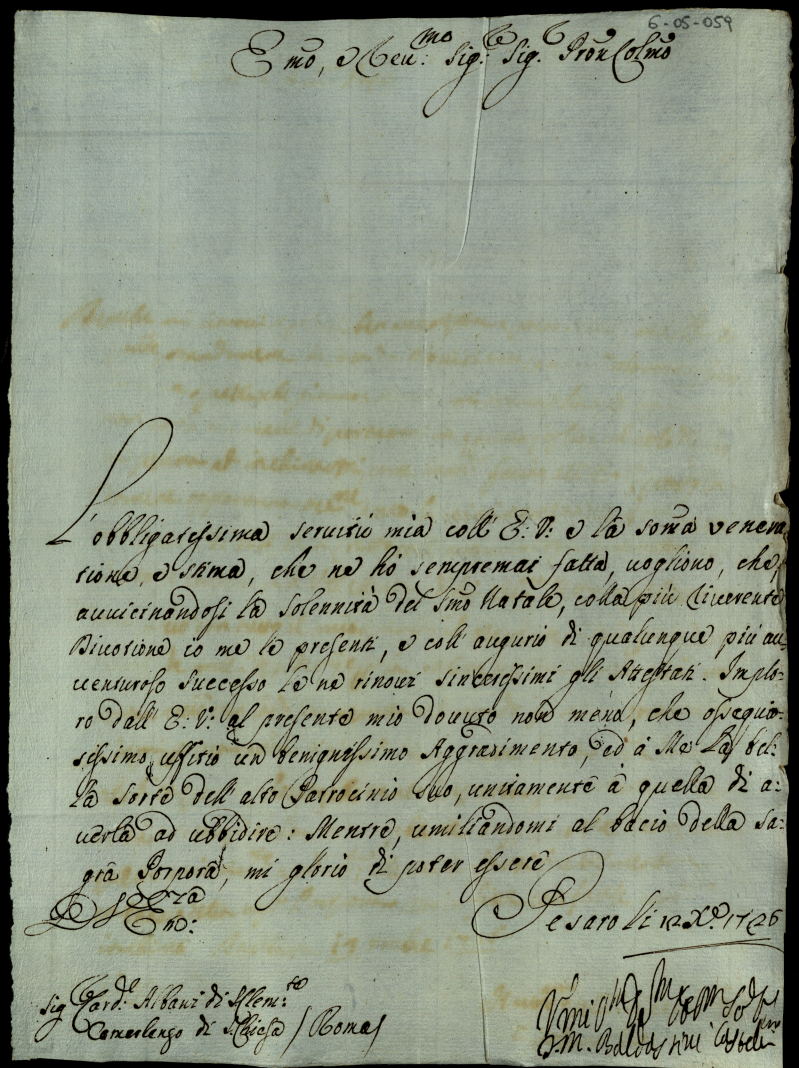 6-05-059
Emo, e Reu.mo Sig.re Sig.re Pron Colmo
L'obbligatissima seruitù mia coll' E: V: e la soma venera
tione, e stima, che ne hò sempremai fatta, uogliono, che
auuicinandosi la Solennità del Smo Natale, colla più riuerente
Diuotione io me le presenti, e coll' augurio di qualunque più au-
uenturoso successo le ne rinoui sincerissimi gli Attestati. Implo-
ro dall' E: V: al presente mio douuto non meno, che ossequio-
sissimo uffitio un benignissimo Aggradimento, ed à Me la bel-
la sorte dell' alto Patrocinio suo, unitamente à quella di a-
uerla ad ubbidire: Mentre, umiliandomi al bacio della sa-
gra Porpora, mi glorio di poter essere
Pesaro li 12 Xbre 1726
Sig Card.le Albani di S. Clem.te
Camerlengo di S. Chiesa / Roma /